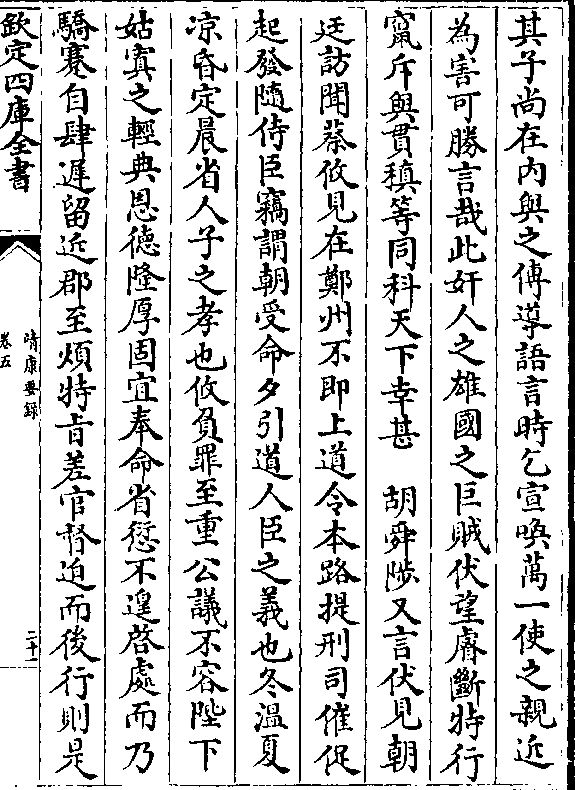 其子尚在内與之傳導語言時乞宣喚萬一使之親近
為害可勝言哉此奸人之雄國之巨賊伏望睿斷特行
竄斥與貫稹等同科天下幸甚 胡舜陟又言伏見朝
廷訪聞蔡攸見在鄭州不即上道令本路提刑司催促
起發隨侍臣竊謂朝受命夕引道人臣之義也冬溫夏
凉昏定晨省人子之孝也攸負罪至重公議不容陛下
姑寘之輕典恩德隆厚固宜奉命省愆不遑啓處而乃
驕蹇自肆遲留近郡至煩特㫖差官督迫而後行則是
欽定四庫全書
靖康要錄
卷五
二十一